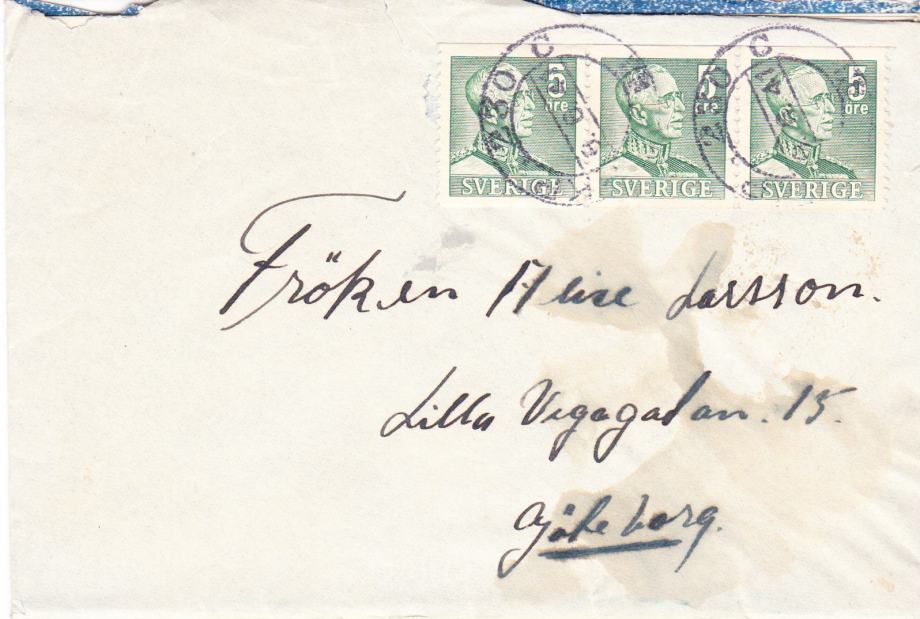 5 öre 5 öre 5 öre
SVERIGE SVERIGE SVERIGE
Fröken Alise Larsson.
Lilla Vegagatan. 15.
Göteborg.